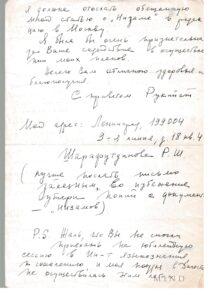 я должна отослать обещанную
мной статью о „Низаме" в редак
цию в Москву.
Я Вам б. очень признательна
за Ваше содействие в осуществле
нии моих планов.
Всего Вам отличного здоровья
благополучия
С приветом
Мой адрес: Ленинград, 199004
3-я линия, д 18 кв. 4
Шарафутдинова Р. Ш
(лучше послать письмо
заказным, во избежание
копий с документ
низамов)
P.S Жаль, что Вы не смогли
приехать на юбилейную
сессию в Ин-т языкознания
к сожалению, и моя поездка в
не осуществилась